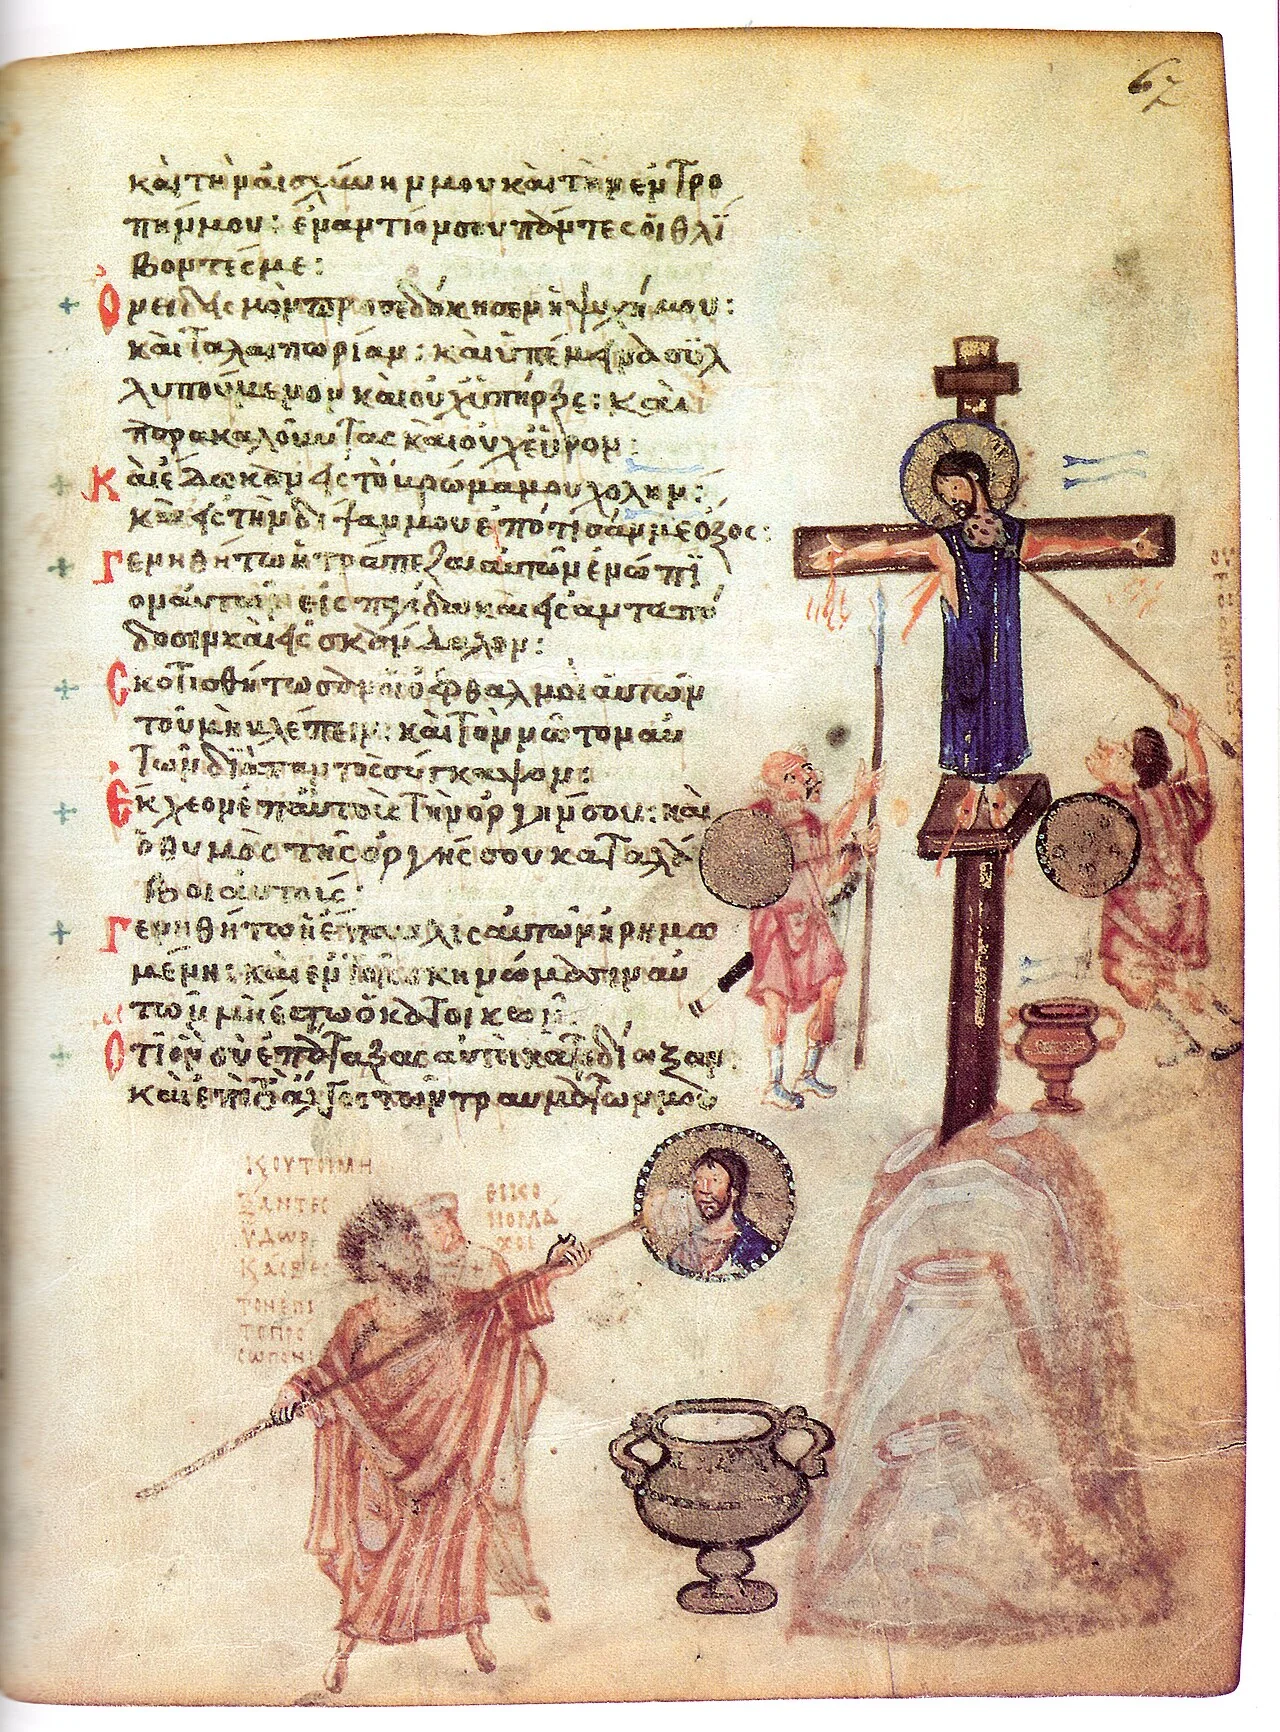 67
καὶ τὴν αἰσχύνην μου καὶ τὴν ἐντρο
πήν μου: ἐναντίον σου πάντες οἱ θλί
βοντές με:
Ὀνειδισμὸν προσεδόκησεν ἡ ψυχή μου:
καὶ ταλαιπωρίαν: καὶ ὑπέμεινα συλ
λυπούμενον καὶ οὐχ ὑπῆρξε: καὶ
παρακαλοῦντας καὶ οὐχ εὗρον:
Καὶ ἔδωκαν εἰς τὸ βρῶμα μου χολὴν:
καὶ εἰς τὴν δίψαν μου ἐπότισάν με ὄξος:
Γενηθήτω ἡ τράπεζα αὐτῶν ἐνώπι
ον αὐτῶν εἰς παγίδα καὶ εἰς ἀνταπό
δοσιν καὶ εἰς σκάνδαλον:
Σκοτισθήτωσαν οἱ ὀφθαλμοὶ αὐτῶν
τοῦ μὴ βλέπειν: καὶ τὸν νῶτον αὐ
τῶν διὰ παντὸς σύγκαμψον:
Ἔκχεον ἐπ' αὐτοὺς τὴν ὀργήν σου: καὶ
ὁ θυμὸς τῆς ὀργῆς σου καταλά
βοι αὐτούς:
Γενηθήτω ἡ ἔπαυλις αὐτῶν ἠρημω
μένη: καὶ ἐν τοῖς σκηνώμασιν αὐ
τῶν μὴ ἔστω ὁ κατοικῶν:
Ὅτι ὃν σὺ ἐπάταξας αὐτοὶ κατεδίωξαν:
καὶ ἐπὶ τὸ ἄλγος τῶν τραυμάτων μου
Κ ΟΥΤΟΙ ΜΗ
ΞΑΝΤΕС
ΥΔΩΡ
ΚΑΙ
ΤΟΝ ΕΠΙ
ΤΟ ΠΡΟ
СΩΠΟΝ
ΕΙΚΟ
ΝΟΜΑ
ΧΟΙ